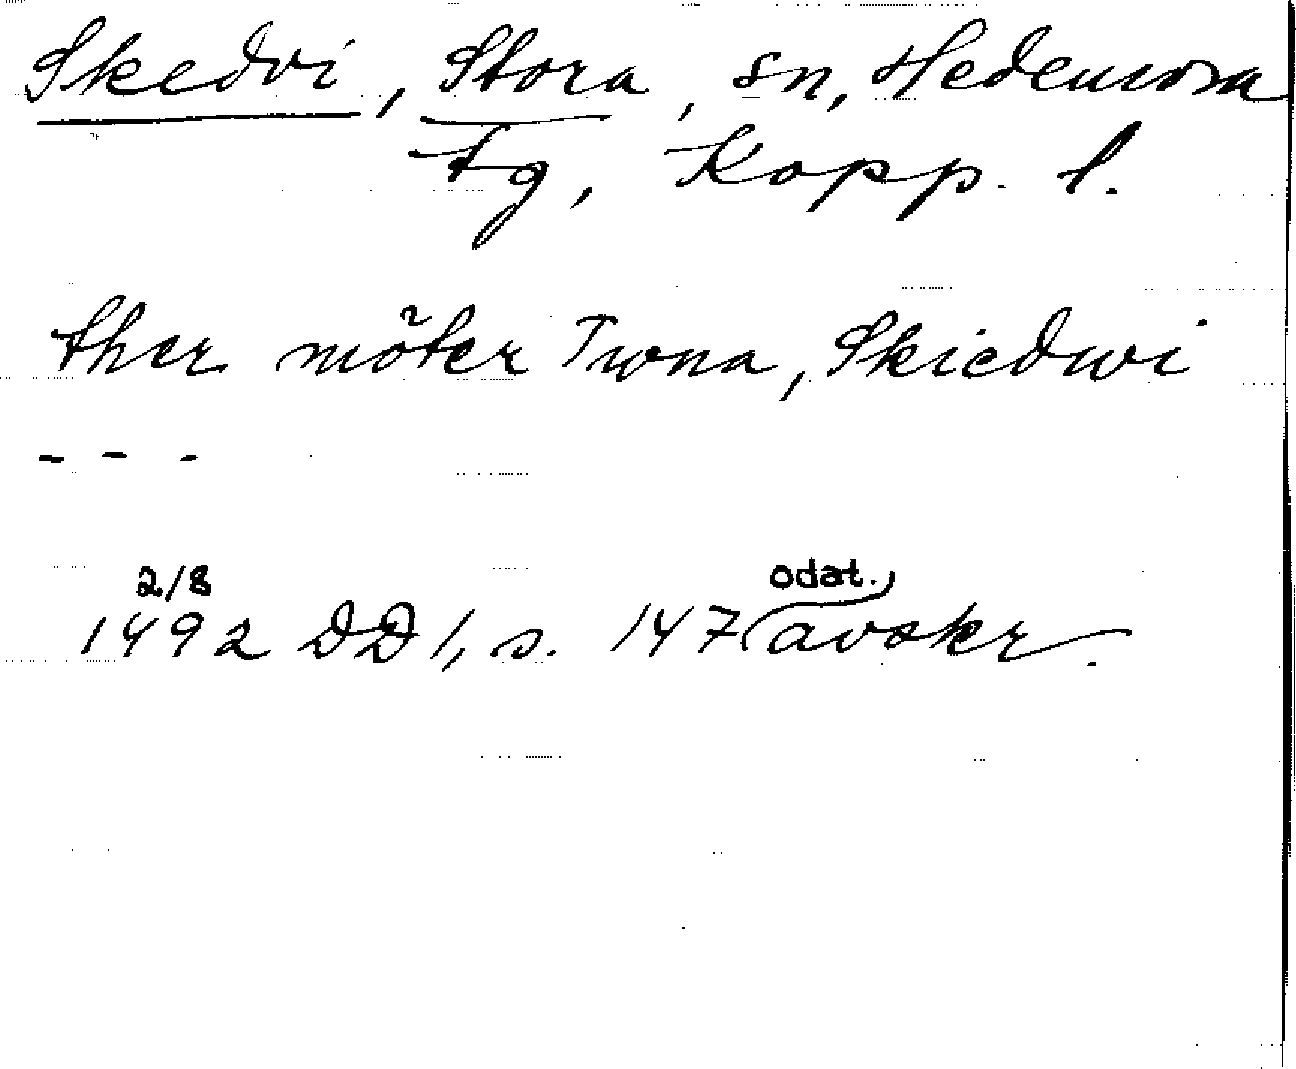 Skedvi, Stora, sn, Hedemora
tg, Kopp. l.
ther möter Twna, Skiedwi
- - -
2/8 odat.
1492 DD 1, s. 147 avskr.